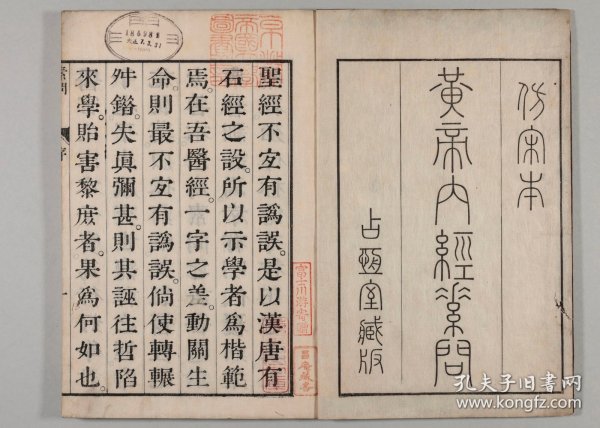 仿宋本
黃帝內經素問
占恆室藏版
聖經不宜有譌誤。是以漢唐有
石經之設。所以示學者爲楷範
焉。在吾醫經一字之差。動關生
命。則最不宜有譌誤。倘使轉輾
舛錯。失眞彌甚。則其誣往哲陷
來學。貽害黎庶者。果爲何如也。
素問
序
一
富士川游寄贈
186981
孔夫子旧书网
www.kongfz.com